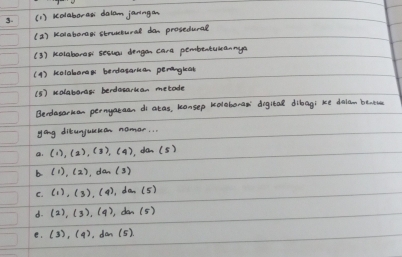 3. (1) Kolaborasi dalam jaringan
(2) Kolaborasi struktural dan prosedural
(3) Kolaborasi sesuai dengan cara pembentukannya
(4) Kolaborasi berdasarkan perangkat
(5) Kolaborasi berdasarkan metode
Berdasarkan pernyataan di atas, konsep kolaborasi digital dibagi ke dalam bentuk
yang ditunjukkan nomor...
a. (1), (2), (3), (4), dan (5)
b. (1), (2), dan (3)
c. (1), (3), (4), dan (5)
d. (2), (3), (4), dan (5)
e. (3), (4), dan (5).